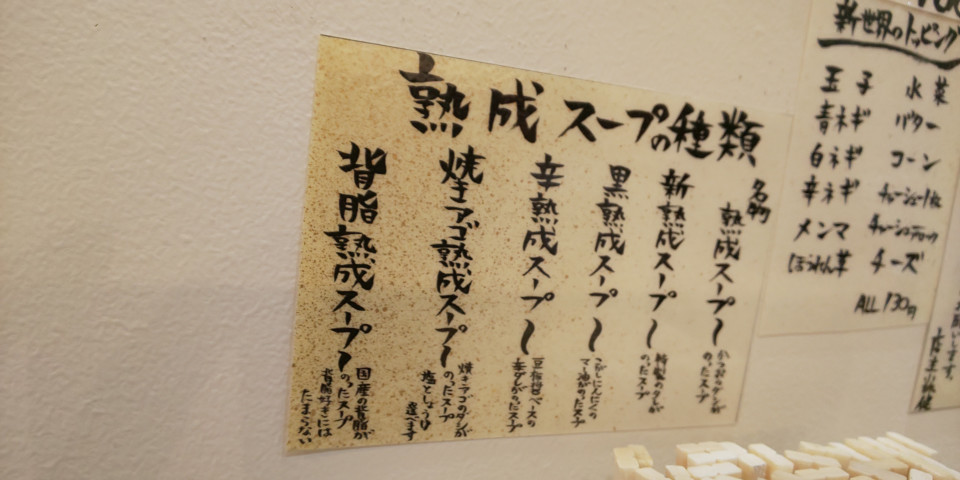 熟成スープの種類
名物
熟成スープ〜
かつおのダシが
のったスープ
新熟成スープ〜
特製のタレが
のったスープ
黒熟成スープ〜
こがしにんにくの
マー油がのったスープ
辛熟成スープ〜
豆板醤ベースの
辛ダレがのったスープ
焼きアゴ熟成スープ〜
焼きアゴのダシが
のったスープ
塩としょうゆ
選べます
背脂熟成スープ〜
国産の背脂が
のったスープ
背脂好きには
たまらない
新世界のトッピング
玉子 水菜
青ネギ バター
白ネギ コーン
辛ネギ チャーシュー1枚
メンマ チャーシューブロック
ほうれん草 チーズ
ALL 130円
します。
店主